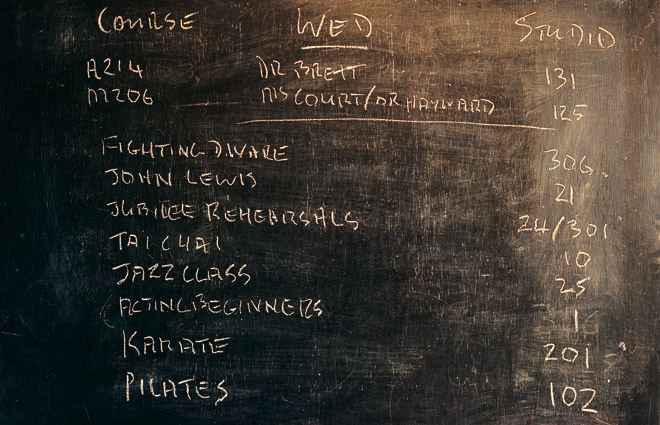 COURSE WED STUDIO
A214 DR BRETT 131
M206 MS COURT/DR HAYWARD 125
FIGHTING DWARE 306
JOHN LEWIS 21
JUBILEE REHEARSALS 24/301
TAI CHAI 10
JAZZ CLASS 25
ACTING BEGINNERS 1
KARATE 201
PILATES 102